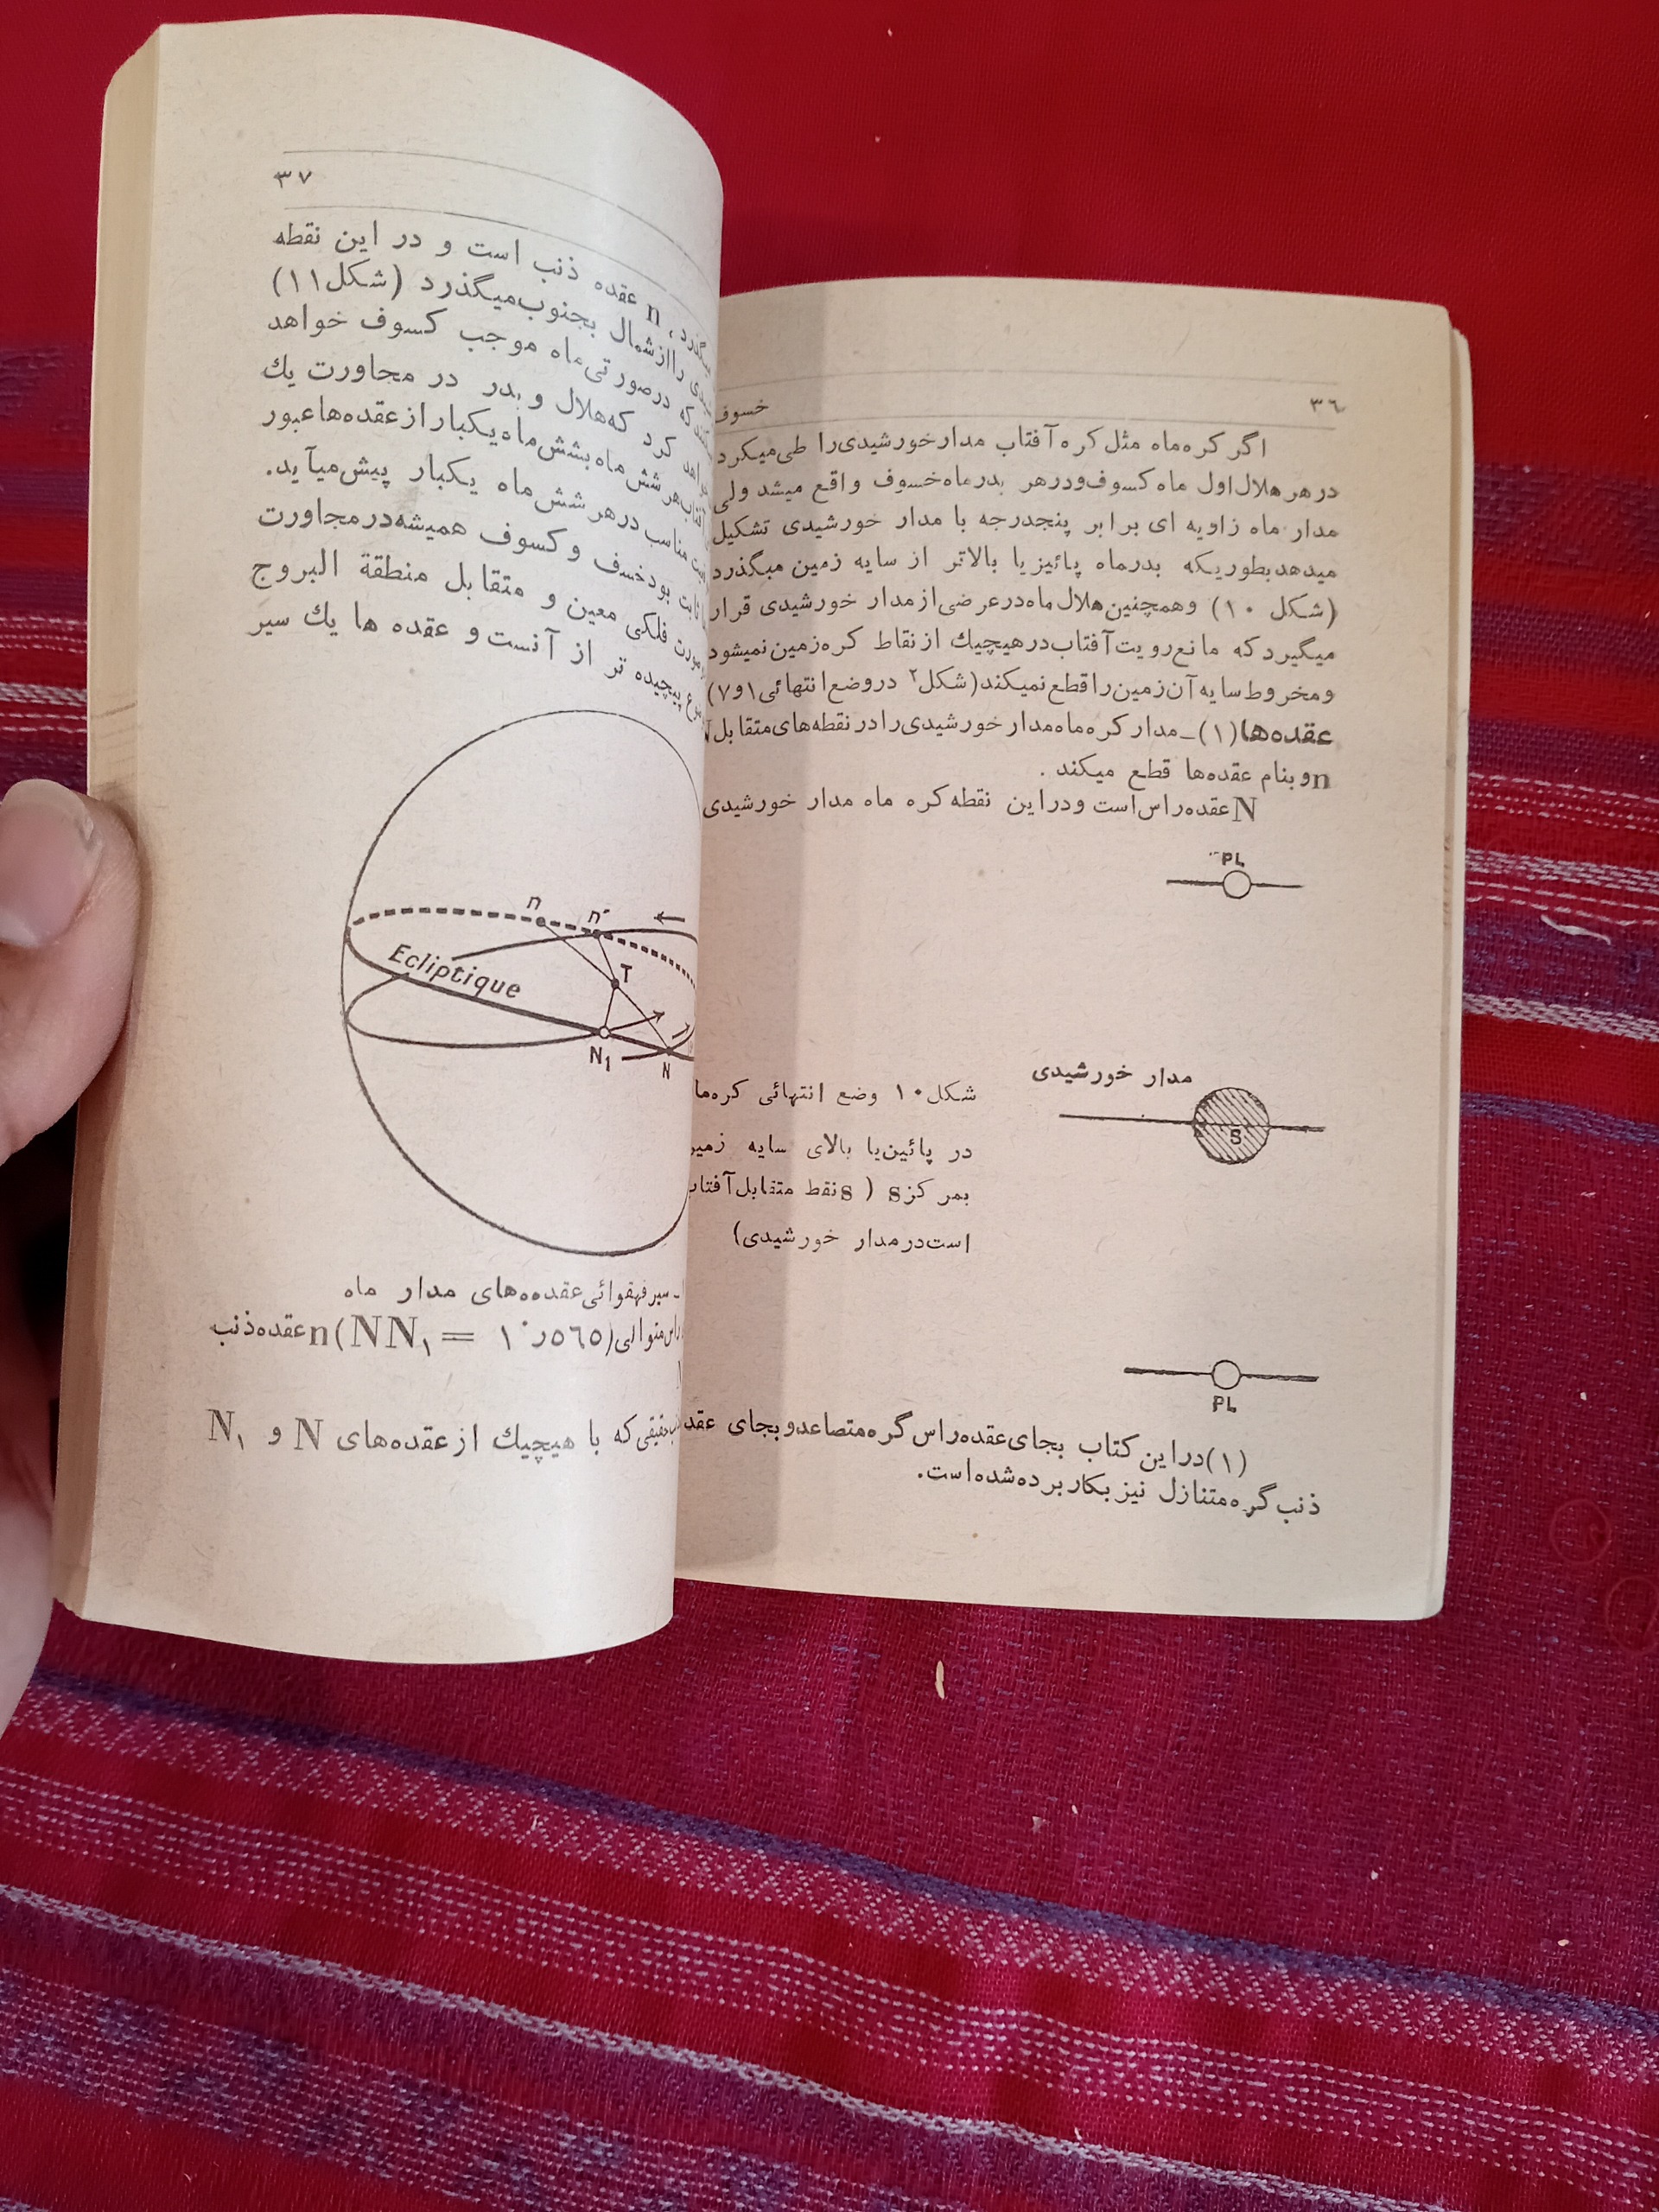 ٣٦
خسوف
اگر کره‌ماه مثل کره آفتاب مدار خورشیدی را طی میکرد
در هر هلال اول ماه کسوف و در هر بدر ماه خسوف واقع میشد ولی
مدار ماه زاویه ای برابر پنجدرجه با مدار خورشیدی تشکیل
میدهد بطوریکه بدر ماه پائیز یا بالاتر از سایه زمین میگذرد
(شکل ١٠) و همچنین هلال ماه در عرضی از مدار خورشیدی قرار
میگیرد که مانع رویت آفتاب در هیچیك از نقاط کره زمین نمیشود
و مخروط سایه آن زمین را قطع نمیکند (شکل ٢ در وضع انتهائی ١ و ٧)
عقده‌ها (١) ــ مدار کره ماه مدار خورشیدی را در نقطه‌های متقابل N
n و بنام عقده‌ها قطع میکند .
N عقده راس است و در این نقطه کره ماه مدار خورشیدی
PL
مدار خورشیدی
S
PL
شکل ١٠ وضع انتهائی
در پائین یا بالای سایه
بمرکز s ( s نقط متقابل آفتاب
است در مدار خورشیدی)
(١) در این کتاب بجای عقده راس گره متصاعد و بجای
ذنب گره متنازل نیز بکار برده شده است.
٣٧
n عقده ذنب است و در این نقطه
را از شمال بجنوب میگذرد (شکل ١١)
که در صورتی ماه موجب کسوف خواهد
کرد که هلال و بدر در مجاورت یك
هر شش ماه بشش ماه یکبار از عقده‌ها عبور
مناسب در هر شش ماه یکبار پیش میآید.
ثابت بود خسف و کسوف همیشه در مجاورت
فلکی معین و متقابل منطقة البروج
پیچیده تر از آنست و عقده ها یك سیر
n
n'
Ecliptique
T
N1
N
ــ سیر قهقرائی عقده‌های مدار ماه
متوالی (NN١ = ١°ر٥٦٥) n عقده ذنب
که با هیچیك از عقده‌های N و N١